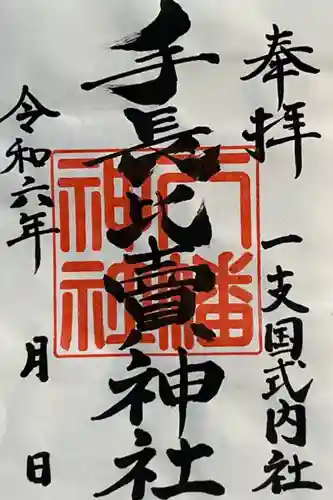 奉拝
一支国式内社
手長比賣神社
八幡
神社
令和六年 月 日